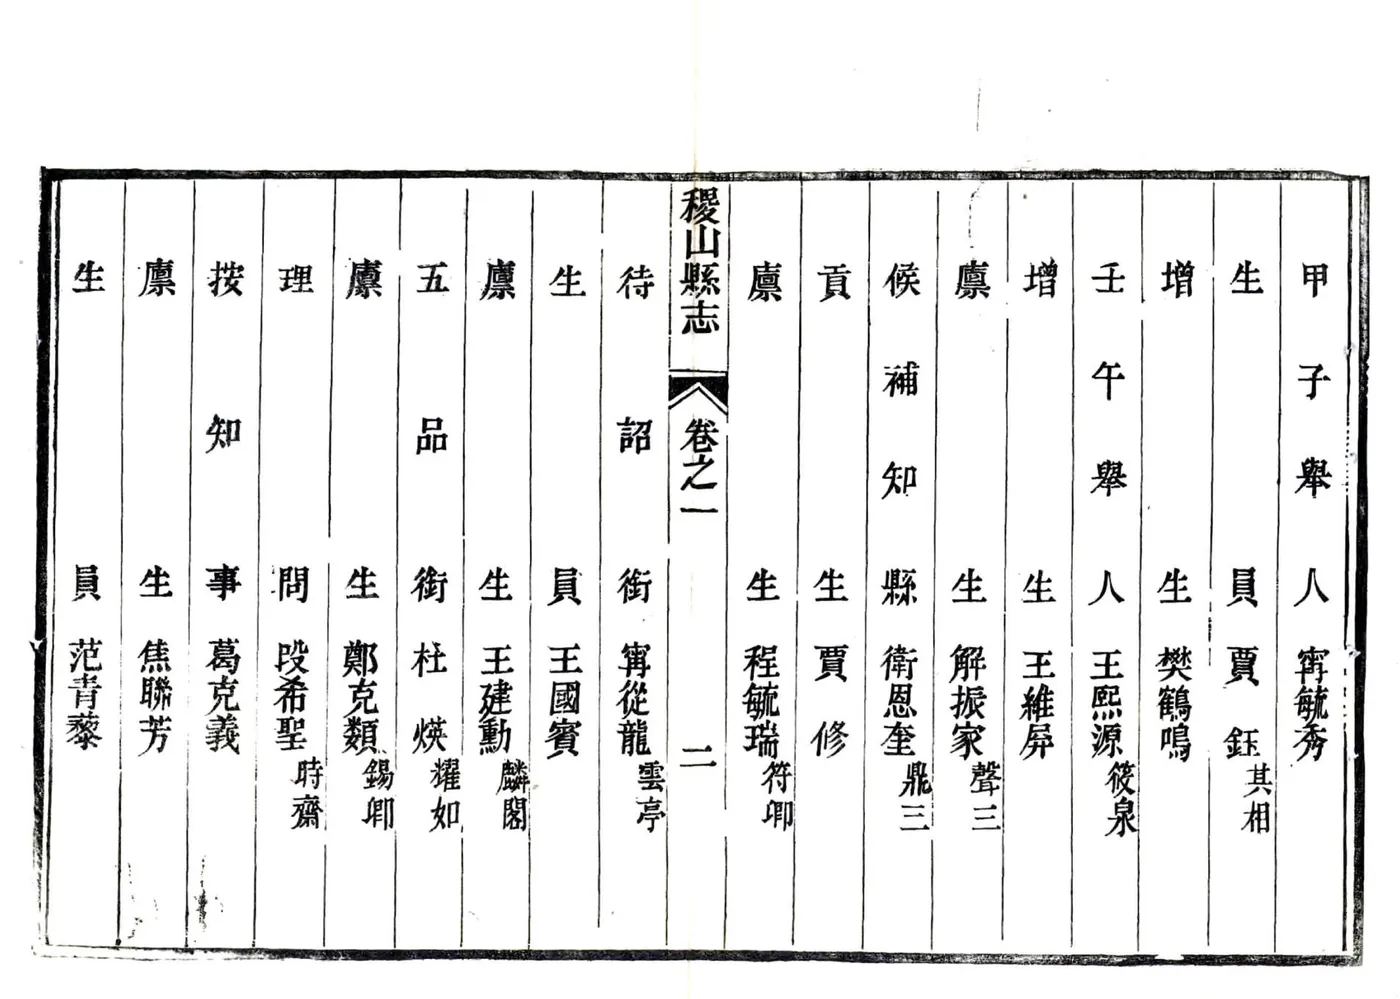 甲子舉人甯毓秀
生員賈鈺其相
增生樊鶴鳴
壬午舉人王熙源筱泉
增生王維屏
廩生解振家聲三
候補知縣衛恩奎鼎三
貢生賈修
廩生程毓瑞符卿
稷山縣志卷之一 二
待詔銜甯從龍雲亭
生員王國賓
廩生王建勳麟閣
五品銜杜煐耀如
廩生鄭克類錫卿
理問段希聖時齋
按知事葛克義
廩生焦聯芳
生員范青藜